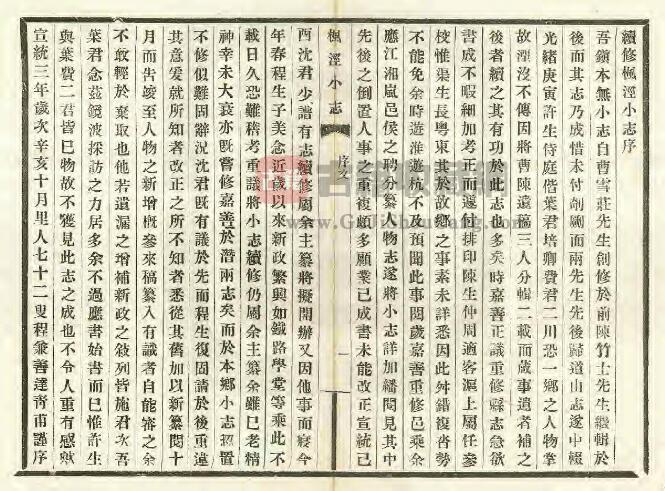 續修楓涇小志序
吾鎮本無小志自曹雪莊先生創修於前陳竹士先生繼輯於
後而其志乃成惜未付剞劂而兩先生先後歸道山志遂中輟
光緒庚寅許生侍庭偕葉君培卿費君二川恐一鄉之人物掌
故湮沒不傳因將曹陳遺稿三人分輯二載而蕆事遺者補之
後者續之其有功於此志也多矣時嘉善正議重修縣志急欲
書成不暇細加考正而遽付排印陳生仲周適客滬上屬任參
校惟渠生長粵東其於故鄉之事素未詳悉因此舛錯復沓勢
不能免余時遊淮遊杭不及預聞此事閱歲嘉善重修邑乘余
應江湘嵐邑侯之聘分纂人物志遂將小志詳加繙閱見其中
先後之倒置人事之重複頗多顧業已成書未能改正宣統己
楓涇小志
序文
一
酉沈君少譜有志續修屬余主纂將擬開辦又因他事而寢今
年春程生子美念近歲以來新政繁興如鐵路學堂等乘此不
載日久恐難稽考重議將小志續修仍屬余主纂余雖已老精
神幸未大衰亦既嘗修嘉善於潛兩志矣而於本鄉小志
置
不修似難固辭況沈君既有議於先而程生復固請於後重違
其意爰就所知者改正之所不知者悉從其舊加以新纂閱十
月而告竣至人物之新增概參來稿纂入有識者自能審之余
不敢輕於棄取也他若遺漏之增補新政之敍列皆施君次吾
葉君念茲鏡波採訪之力居多余不過應書始書而已惟許生
與葉費二君皆已物故不獲見此志之成也不令人重有感歟
宣統三年歲次辛亥十月里人七十二叟程兼善達靑甫謹序